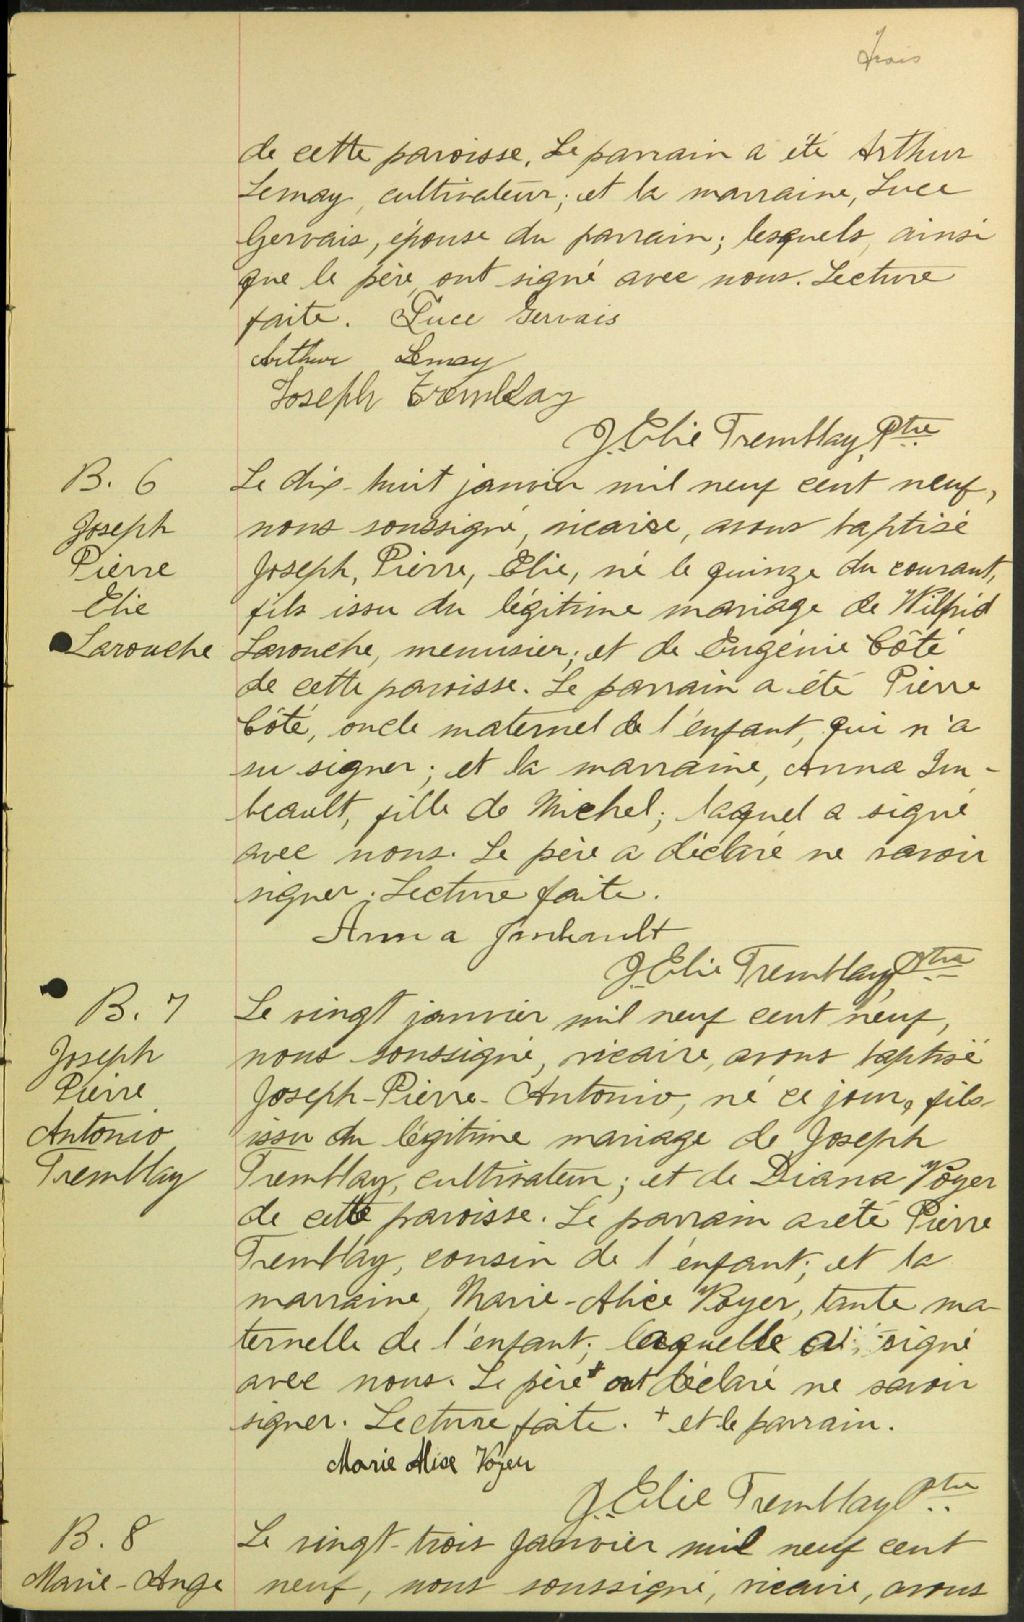 Trois
de cette paroisse. Le parrain a été Arthur
Lemay, cultivateur; et la marraine, Luce
Gervais, épouse du parrain; lesquels, ainsi
que le père, ont signé avec nous. Lecture
faite. Luce Gervais
Arthur Lemay
Joseph Tremblay
J. Elie Tremblay, Ptre
B. 6
Joseph
Pierre
Elie
Larouche
Le dix-huit janvier mil neuf cent neuf,
nous soussigné, vicaire, avons baptisé
Joseph, Pierre, Elie, né le quinze du courant,
fils issu du légitime mariage de Wilfrid
Larouche, menuisier; et de Eugénie Côté
de cette paroisse. Le parrain a été Pierre
Côté, oncle maternel de l'enfant, qui n'a
su signer; et la marraine, Anna Im-
beault, fille de Michel; laquel a signé
avec nous. Le père a déclaré ne savoir
signer. Lecture faite.
Anna Imbeault
J. Elie Tremblay, Ptre
B. 7
Joseph
Pierre
Antonio
Tremblay
Le vingt janvier mil neuf cent neuf,
nous soussigné, vicaire, avons baptisé
Joseph-Pierre-Antonio, né ce jour, fils
issu du légitime mariage de Joseph
Tremblay, cultivateur; et de Diana Voyer
de cette paroisse. Le parrain a été Pierre
Tremblay, cousin de l'enfant; et la
marraine, Marie-Alice Voyer, tante ma-
ternelle de l'enfant; laquelle a signé
avec nous. Le père + ont déclaré ne savoir
signer. Lecture faite. + et le parrain.
Marie Alice Voyer
J. Elie Tremblay Ptre
B. 8
Marie-Ange
Le vingt-trois janvier mil neuf cent
neuf, nous soussigné, vicaire, avons